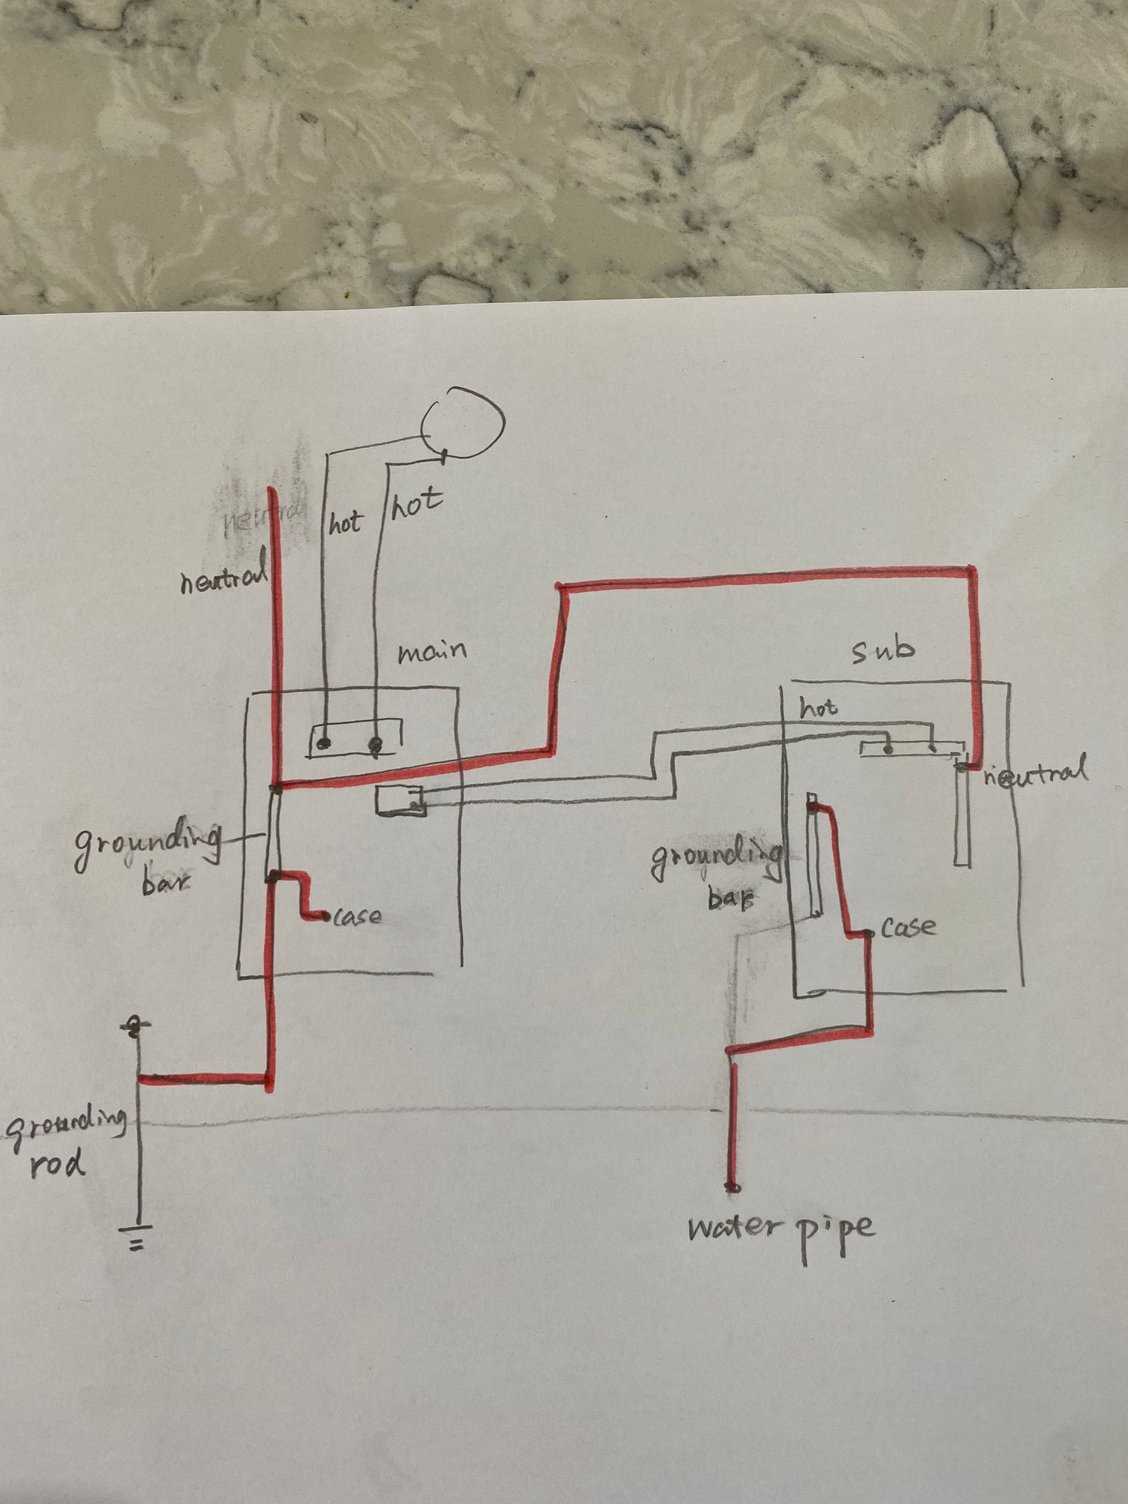 neutral
hot
hot
neutral
main
sub
hot
neutral
grounding
bar
grounding
bar
case
case
grounding
rod
water pipe